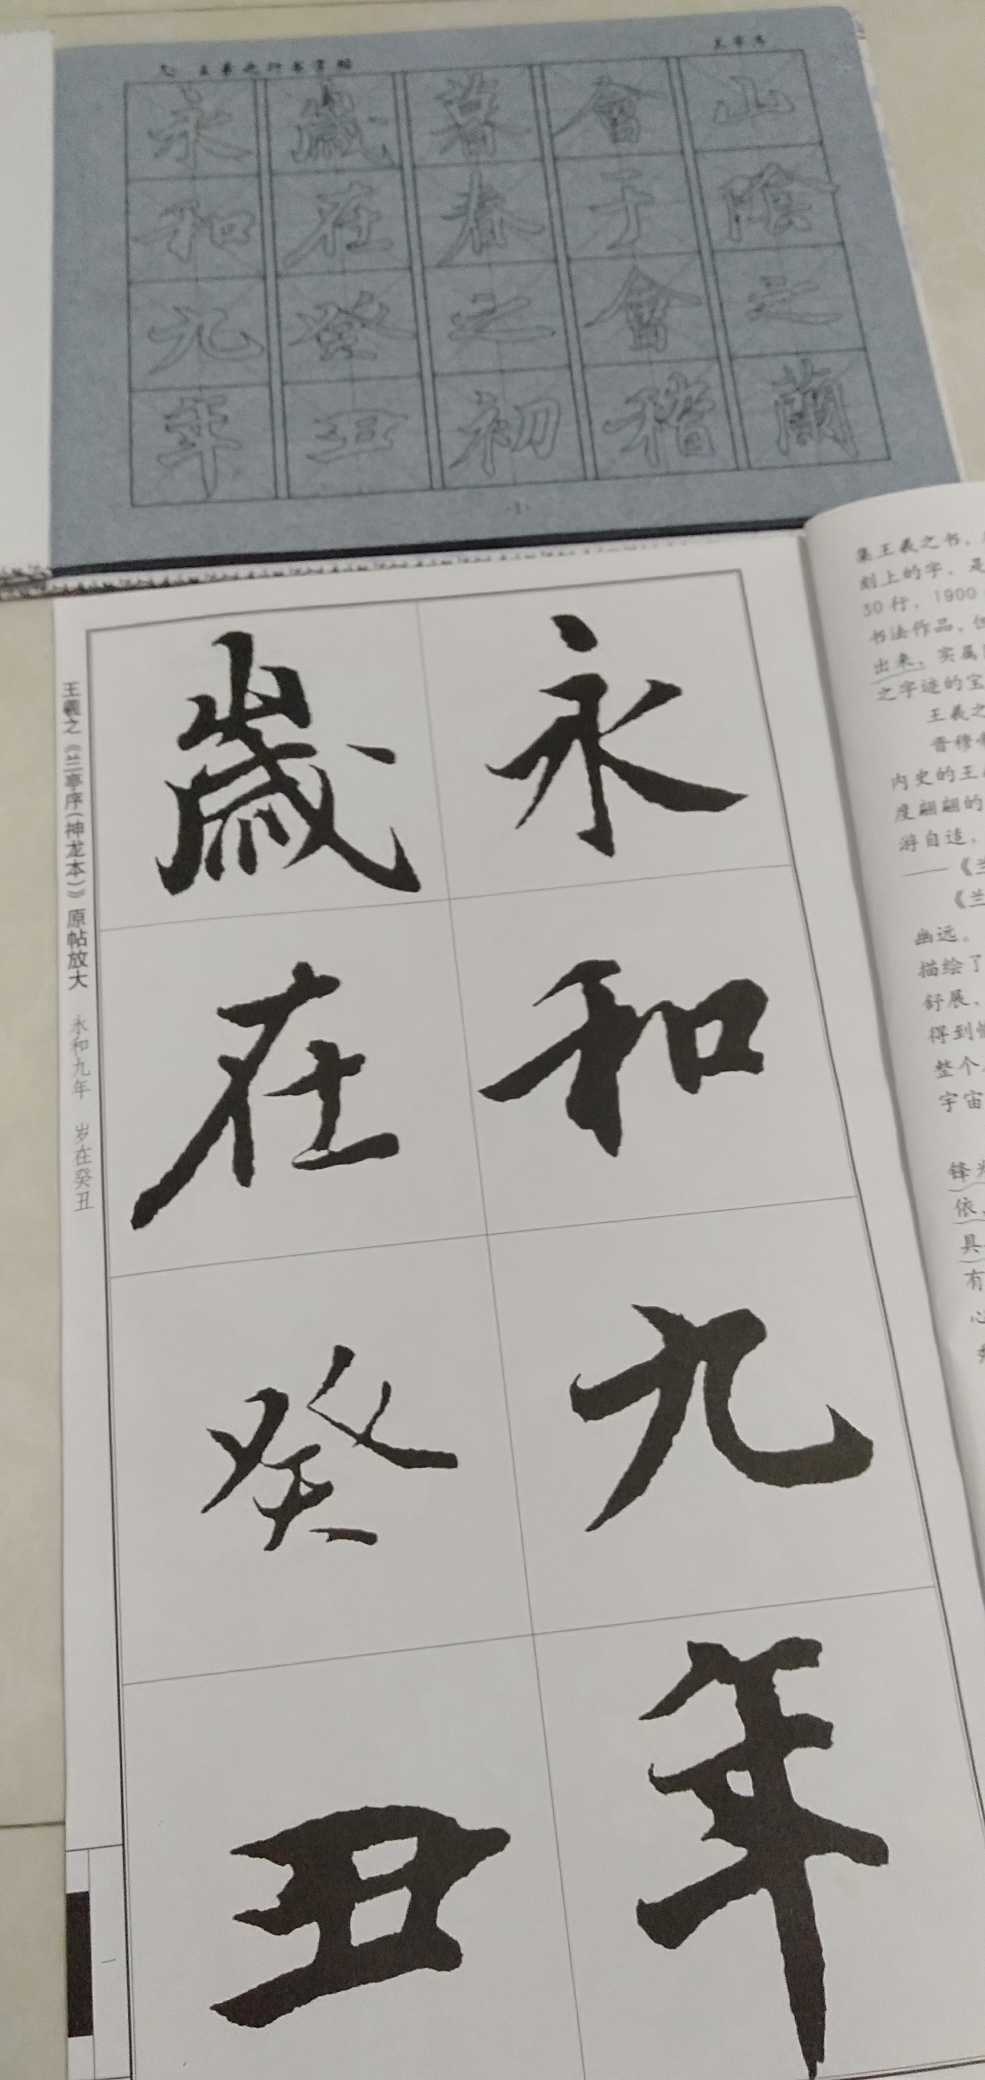 王羲之行书字帖
永歲暮會山
和在春于陰
九癸之會之
年丑初稽蘭
·1·
永和九年
歲在癸丑
王羲之《兰亭序(神龙本)》原帖放大 永和九年 岁在癸丑
一
集王羲之书，
刻上的字，是
30行，1900
书法作品，但
出来，实属
之字迹的宝
王羲之
晋穆
内史的王
度翩翩的
游自适，
——《兰
《兰
幽远。
描绘了
舒展、
得到
整个
宇宙
锋
依
具
有
心